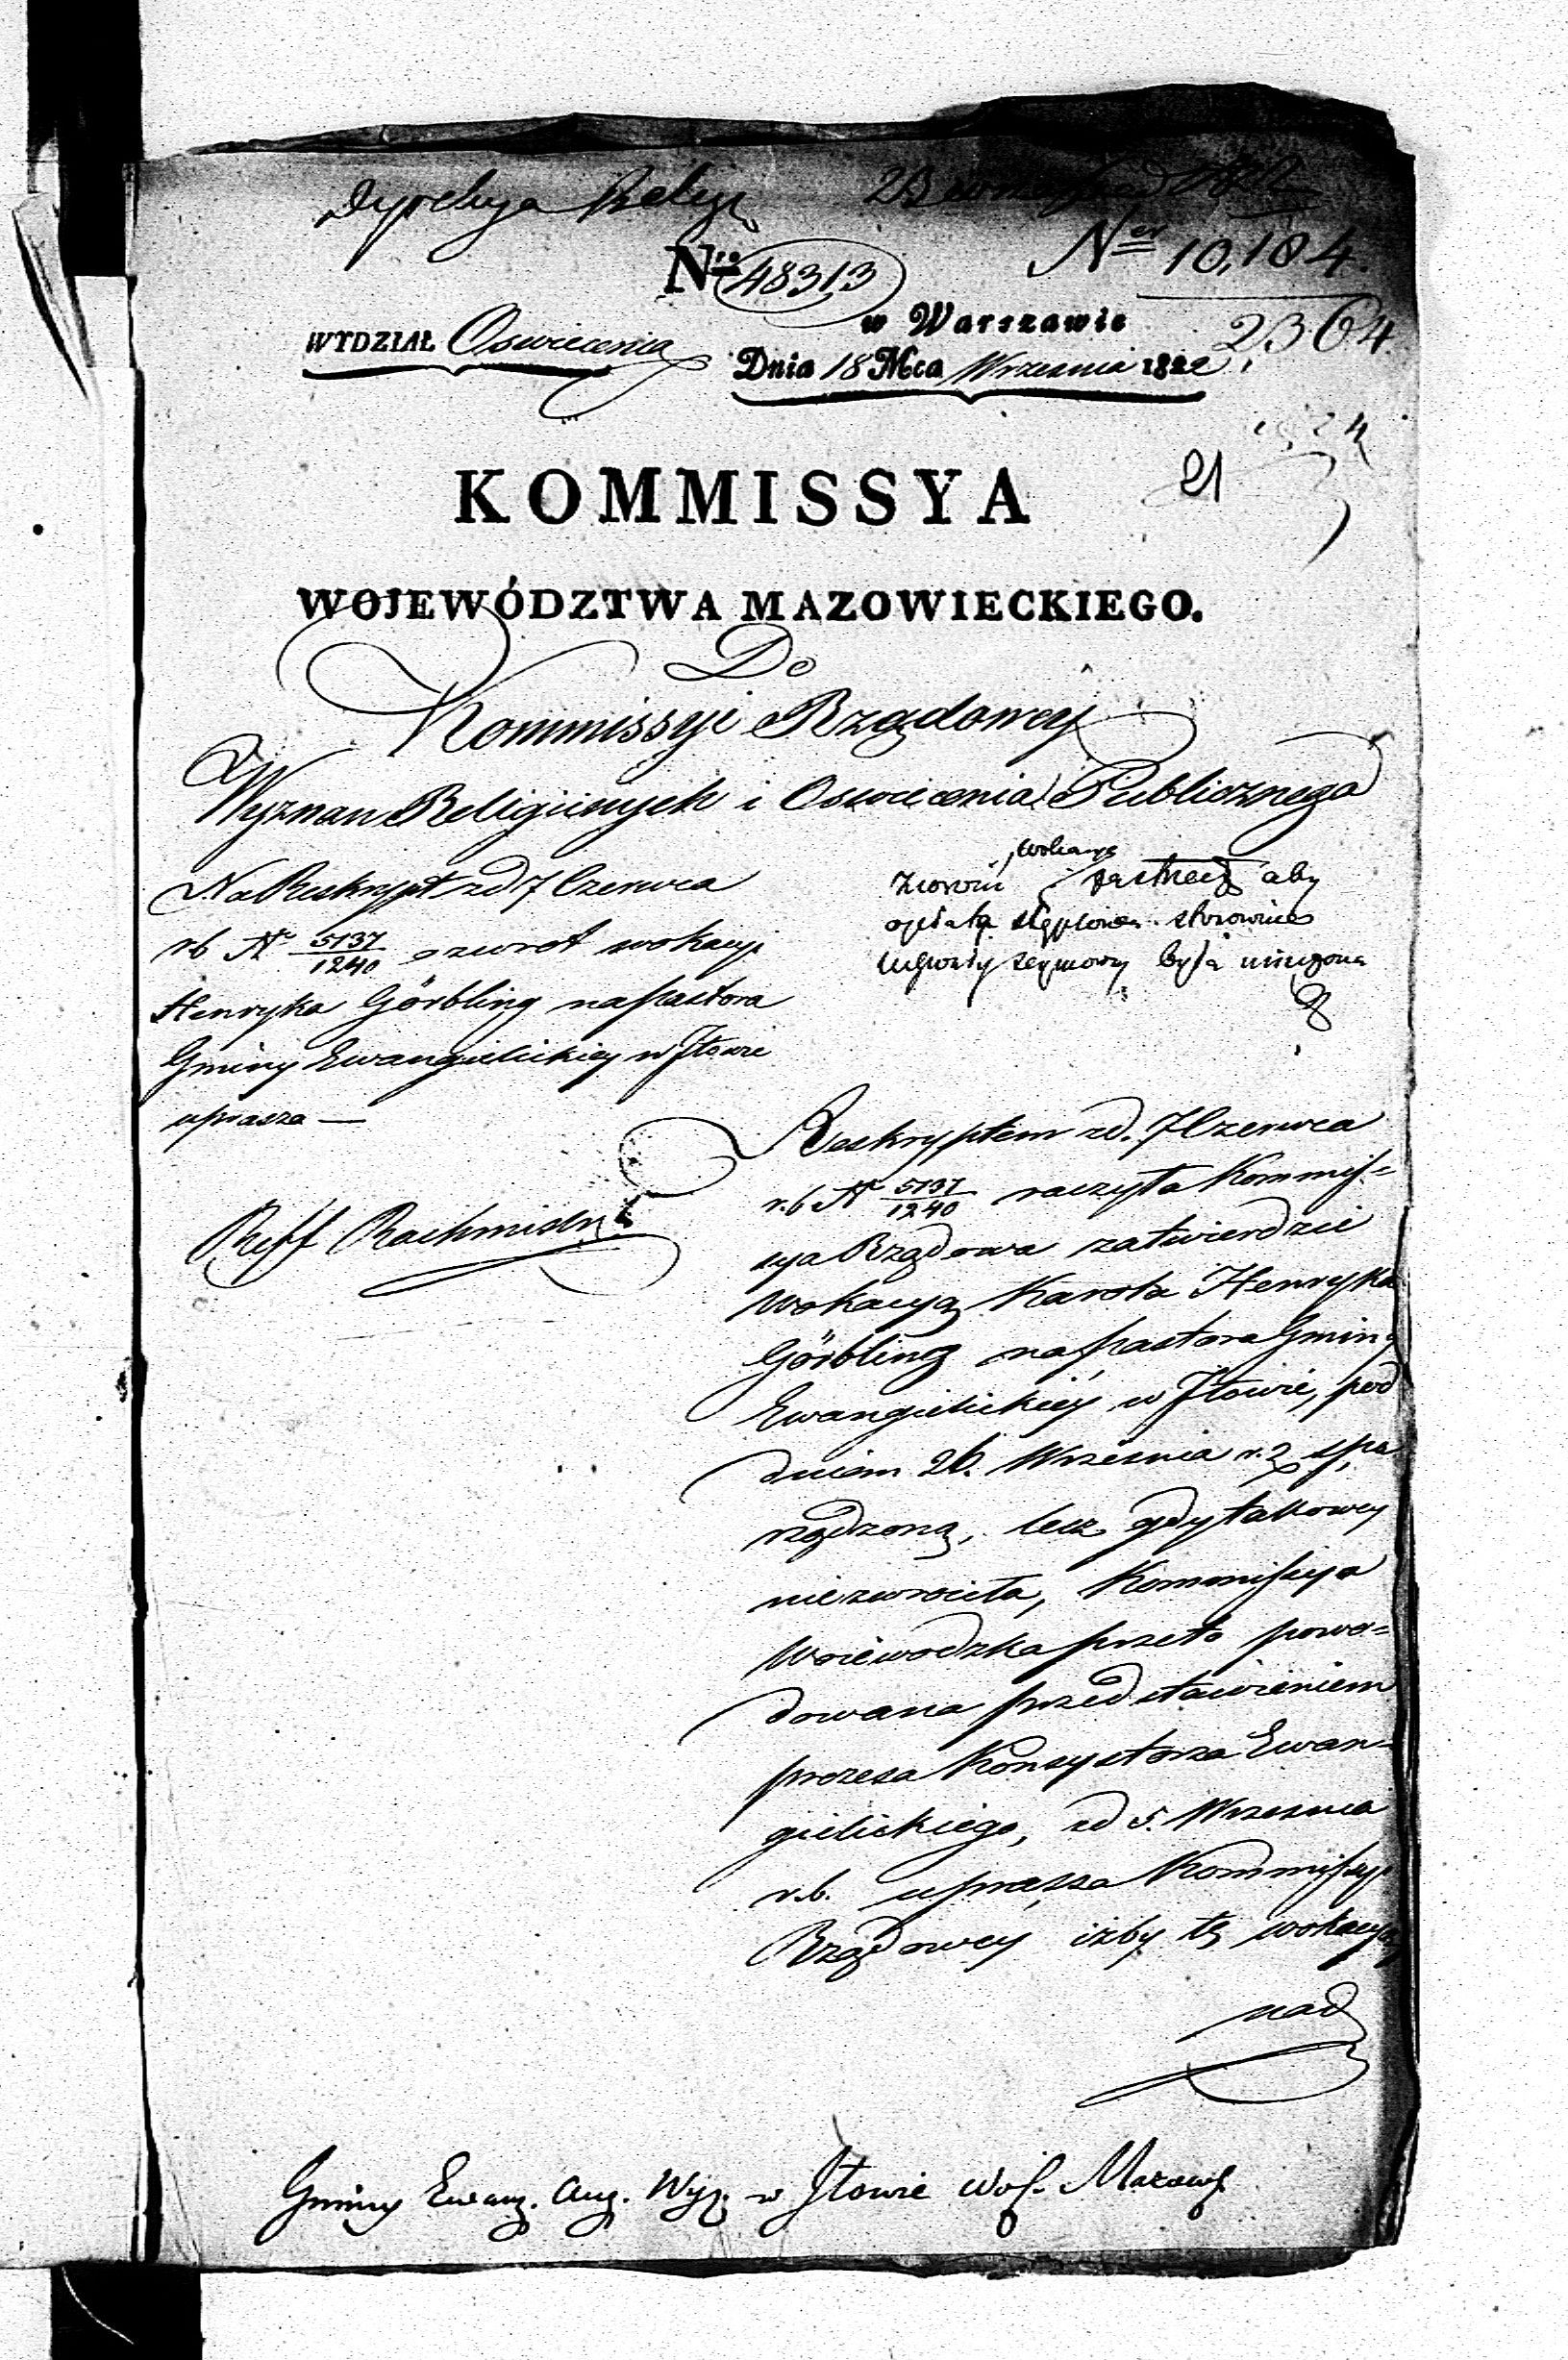 Dyrekcya Religi
23 1822
Nro 48313
Ner 10,184.
2364
w Warszawie
WYDZIAŁ Oswiecenia
Dnia 18 Mca Wrzesnia 1822
21
KOMMISSYA
WOJEWÓDZTWA MAZOWIECKIEGO.
Do
Kommissyi Rządowey
Wyznan Religiinych i Oswiecenia Publicznego
Na Reskrypt zd 7 Czerwca
rb Nr 5137/1240 o zwrot wokacyi
Henryka Görbling na Pastora
Gminy Ewangielickiey w Jłowie
uprasza —
wokacyą
zwrocić aby
opłata stęplowa stosownie
uchwały seymowy była uiszczona
Reskryptem zd. 7 Czerwca
r.b Nr 5137/1240 raczyła Kommis=
sya Rządowa zatwierdzić
wokacyą Karola Henryka
Görbling na Pastora Gminy
Ewangielickiéy w Jłowie, pod
dniem 26. Wrzesnia r. z. spo
rządzoną, lecz gdy takowey
niezwrociła, Kommissya
Woiewodzka przeto powo=
dowana przedstawieniem
prezesa Konsystorza Ewan=
gielickiego, zd 5. Wrzesnia
r.b. uprasza Kommissyi
Rządowey iżby tę wokacyą
nad
Reff Rachmistrz
Gminy Ewang. Aug. Wyz. w Jłowie Woj. Mazow.